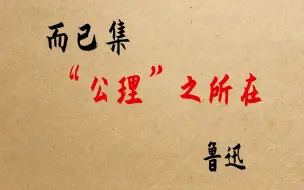 而已集
“公理”之所在
鲁迅